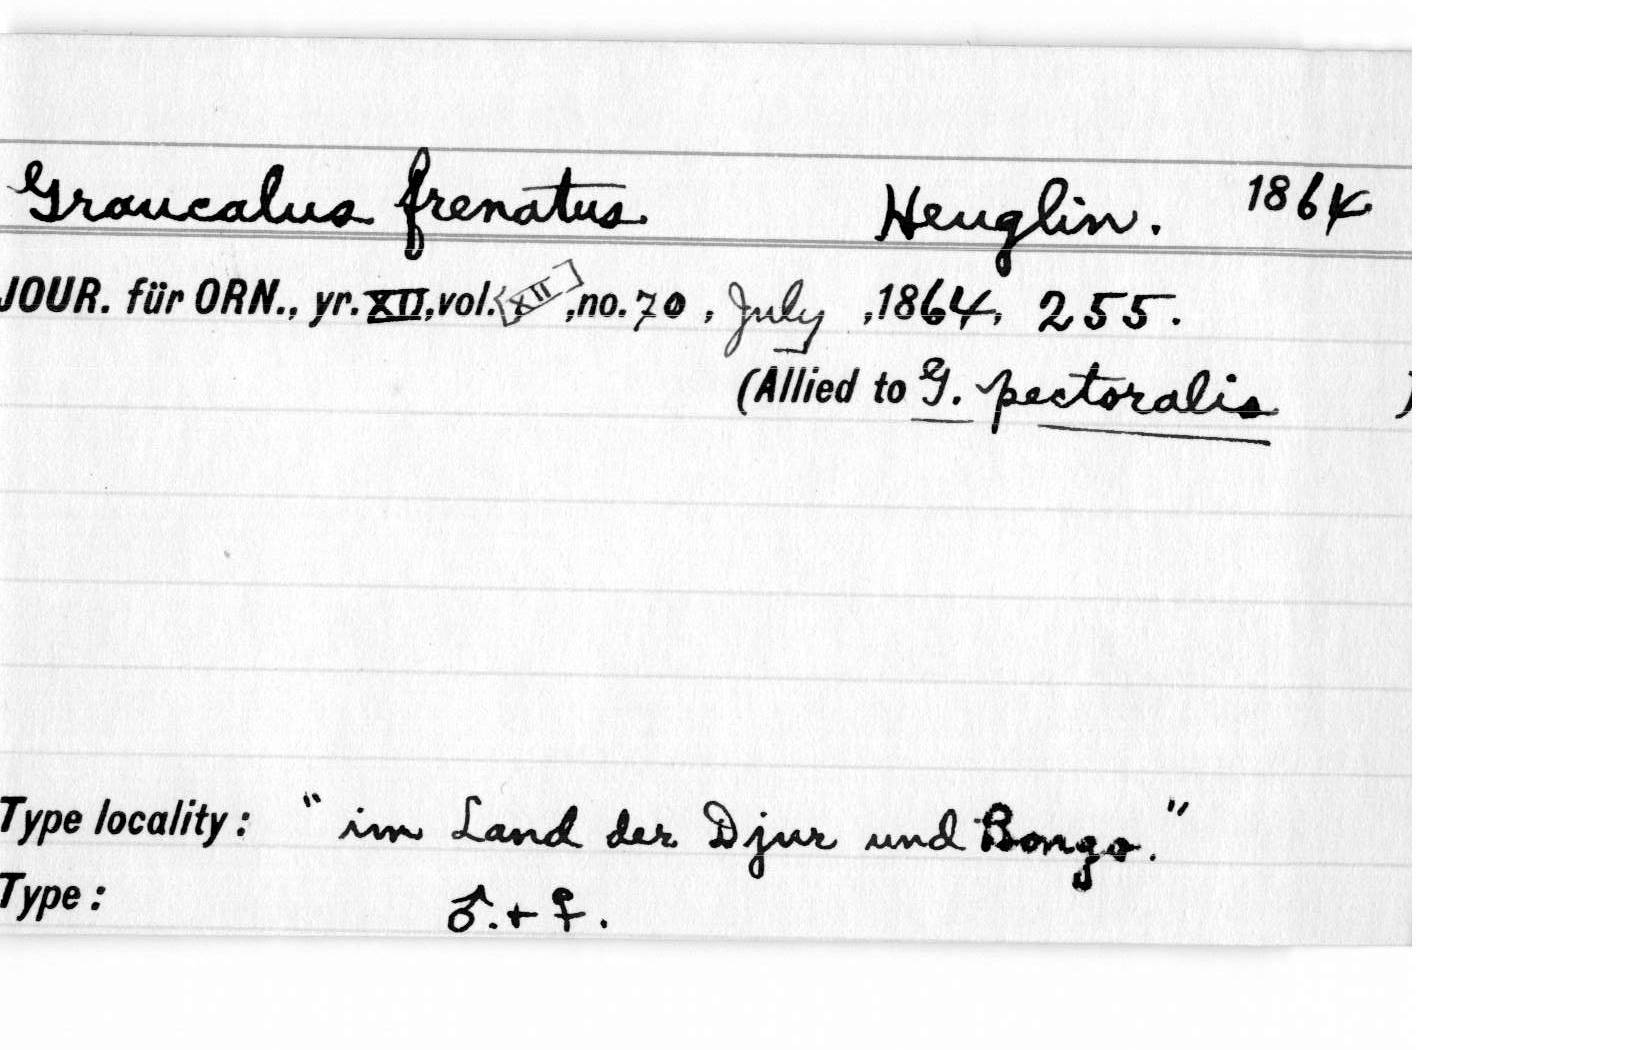 Graucalus frenatus Heuglin. 1864
JOUR. für ORN., yr. XII, vol. [XII], no. 70, July, 1864, 255.
(Allied to G. pectoralis )
Type locality: "im Land der Djur und Bongo."
Type: ♂. + ♀.